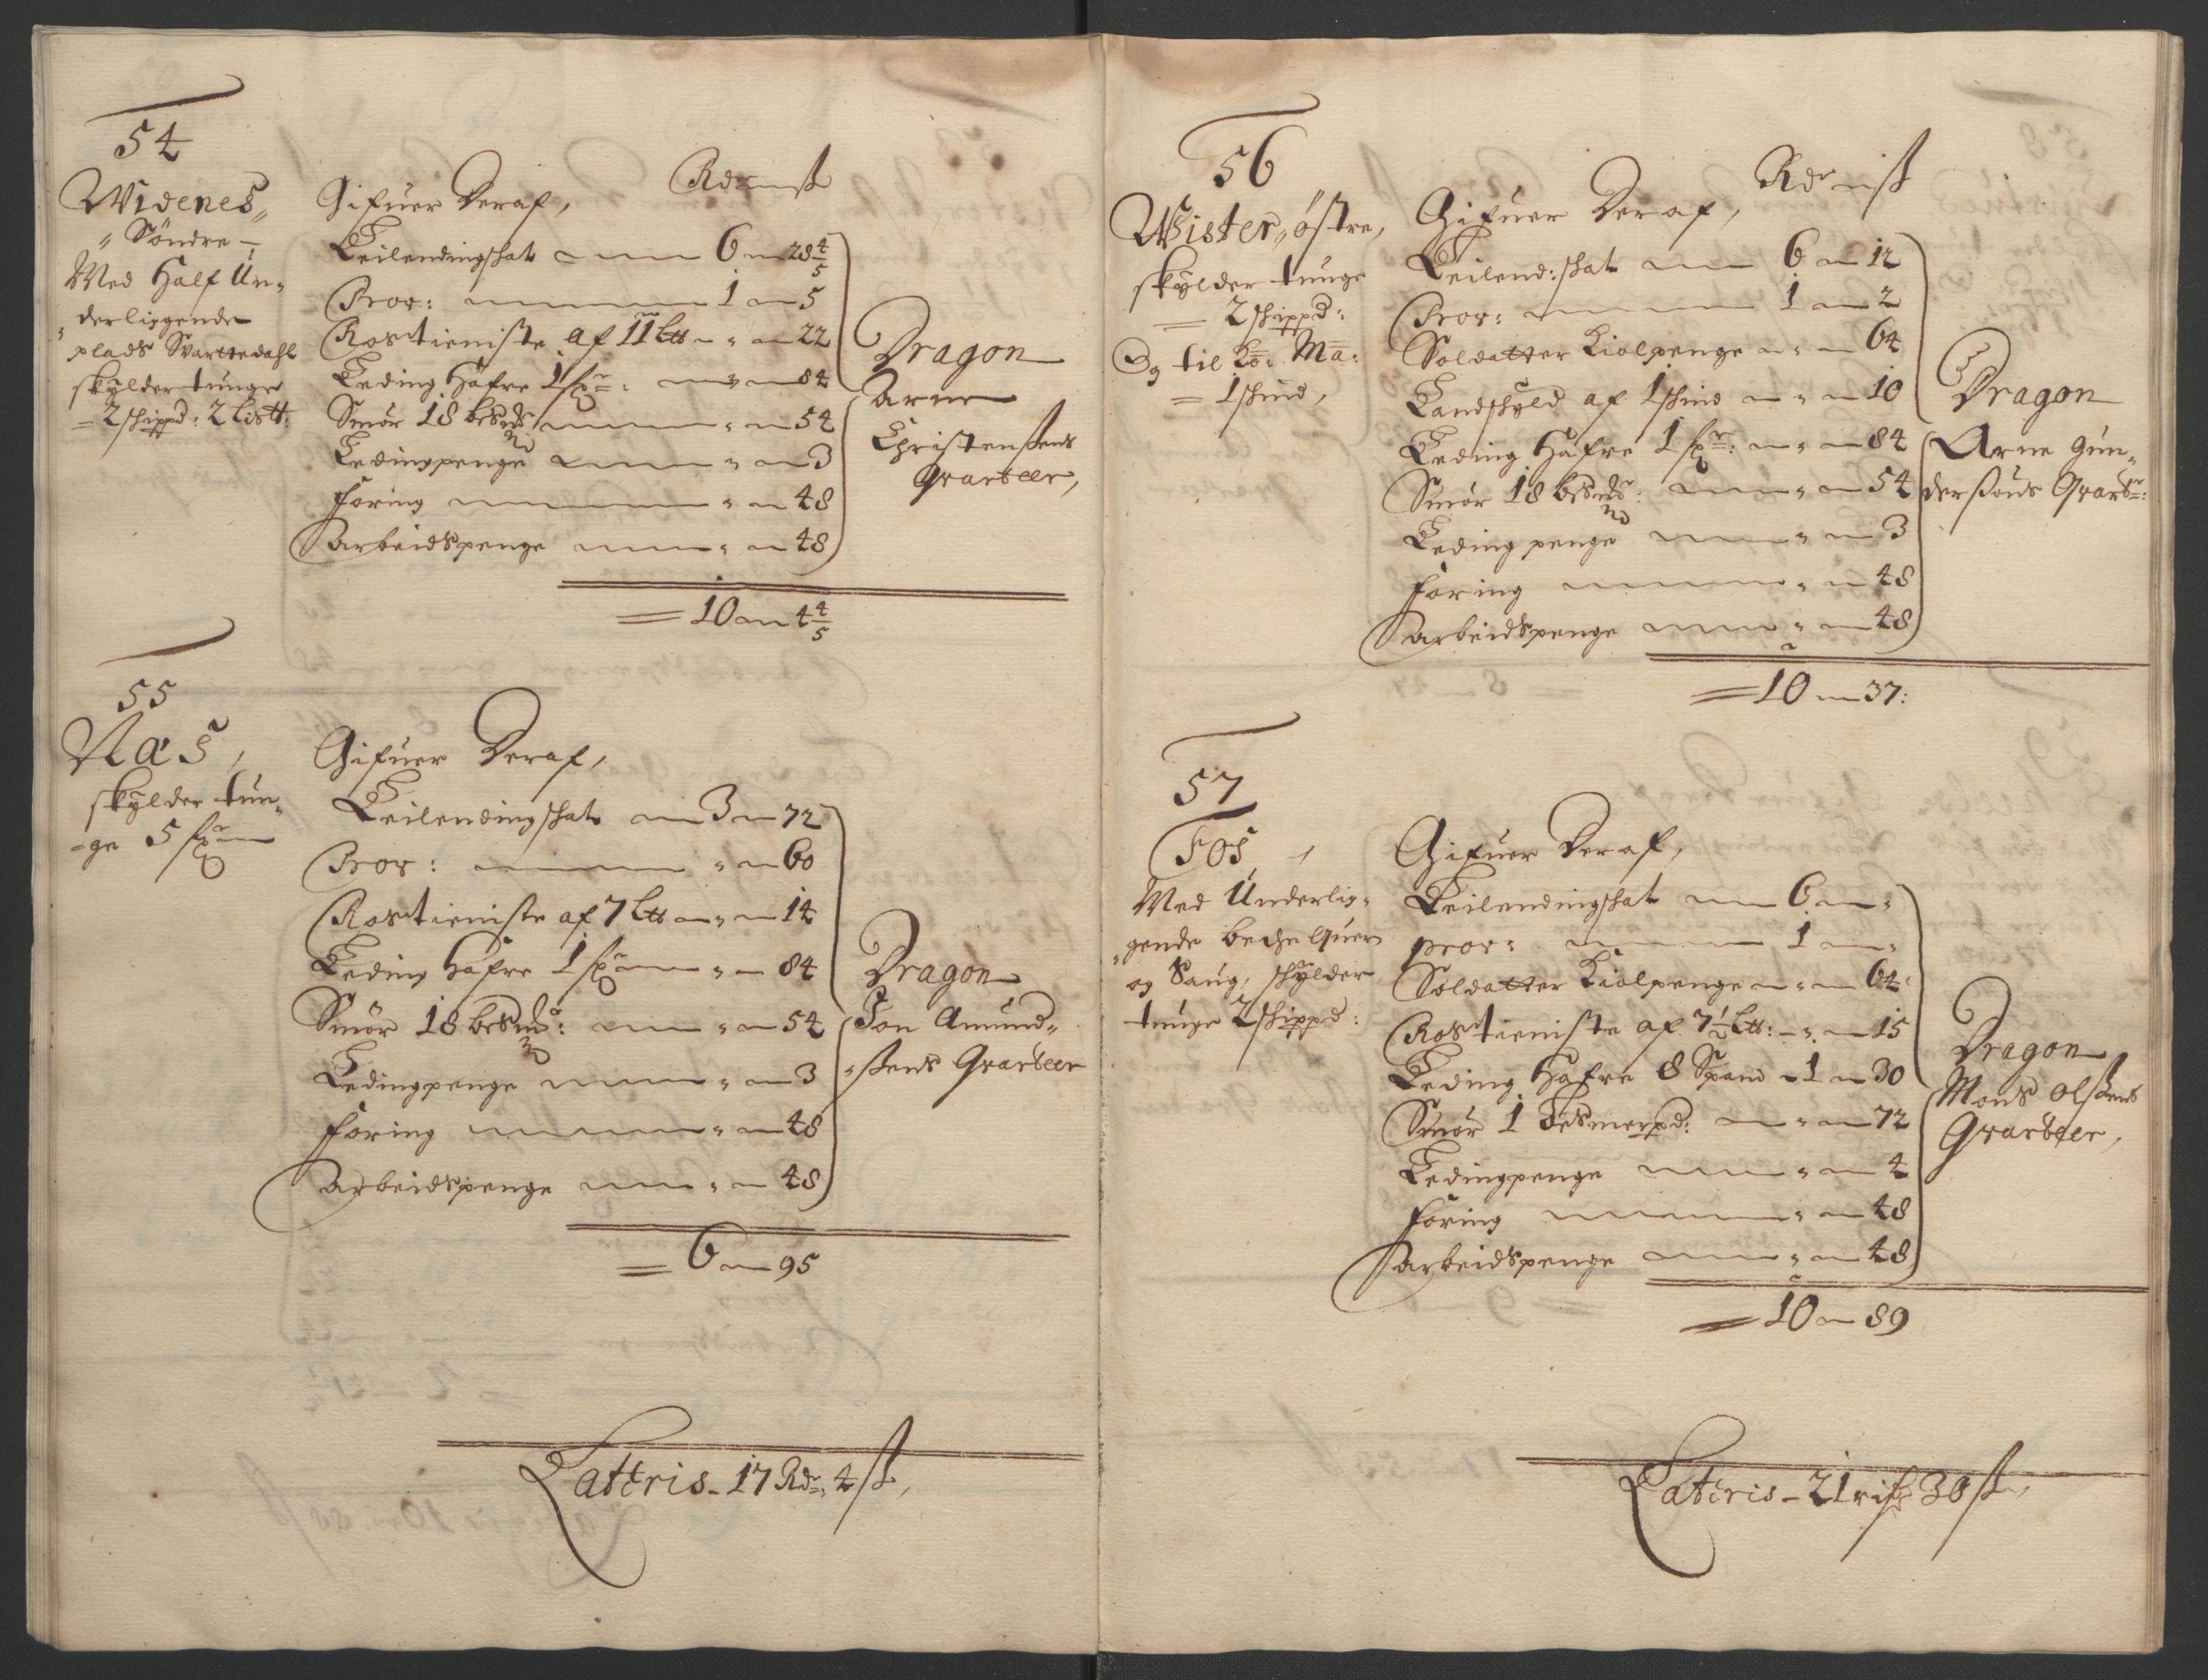 54
Widenes
Søndre
Med Half Un-
derliggende
plads Svartedahl
skylder tunge
2 schippd: 2 Lis℔:
Gifuer Deraf,
Rdr ß
Leilendingskat 6 28 4/5
Prov: 1 5
Rostieniste af 11 L℔ 22
Leding Hafre 1 84
Smør 18 besmr: 54
Ledingpenge 3
Foring 48
Arbeidspenge 48
10 4 4/5
Dragon
Arne
Christensens
Qvarteer,
55
Næs,
skylder tun-
ge 5
Gifuer Deraf,
Leilendingskat 3 72
Prov: 60
Rostieniste af 7 L℔ 14
Leding Hafre 1 84
Smør 18 besmr: 54
Ledingpenge 3
Foring 48
Arbeidspenge 48
6 95
Dragon
Jon Amund-
sens Qvarteer
Lateris 17 Rdr: 4 ß,
56
Wister østre,
skylder tunge
2 schippd:
Og til Ko: Ma:
1 skind,
Gifuer Deraf,
Rdr ß
Leilend: skat 6 12
Prov: 1 2
Soldatter Kiolpenge 64
Landskyld af 1 skind 10
Leding Hafre 1 84
Smør 18 besmr: 54
Leding penge 3
Foring 48
Arbeidspenge 48
10 37:
Dragon
Arne Gun-
dersøns Qvartr:
57
Fos,
Med Underlig-
gende beche Quern
og Saug, skylder
tunge 2 schippd:
Gifuer Deraf,
Leilendingskat 6
prov: 1
Soldatter Kiolpenge 64
Rostieniste af 7 1/2 L℔: 15
Leding Hafre 8 Spand 1 30
Smør 1 Besmerpd: 72
Ledingpenge 4
Foring 48
Arbeidspenge 48
10 89
Dragon
Mons Olsens
Qvarteer,
Lateris 21 30 ß,